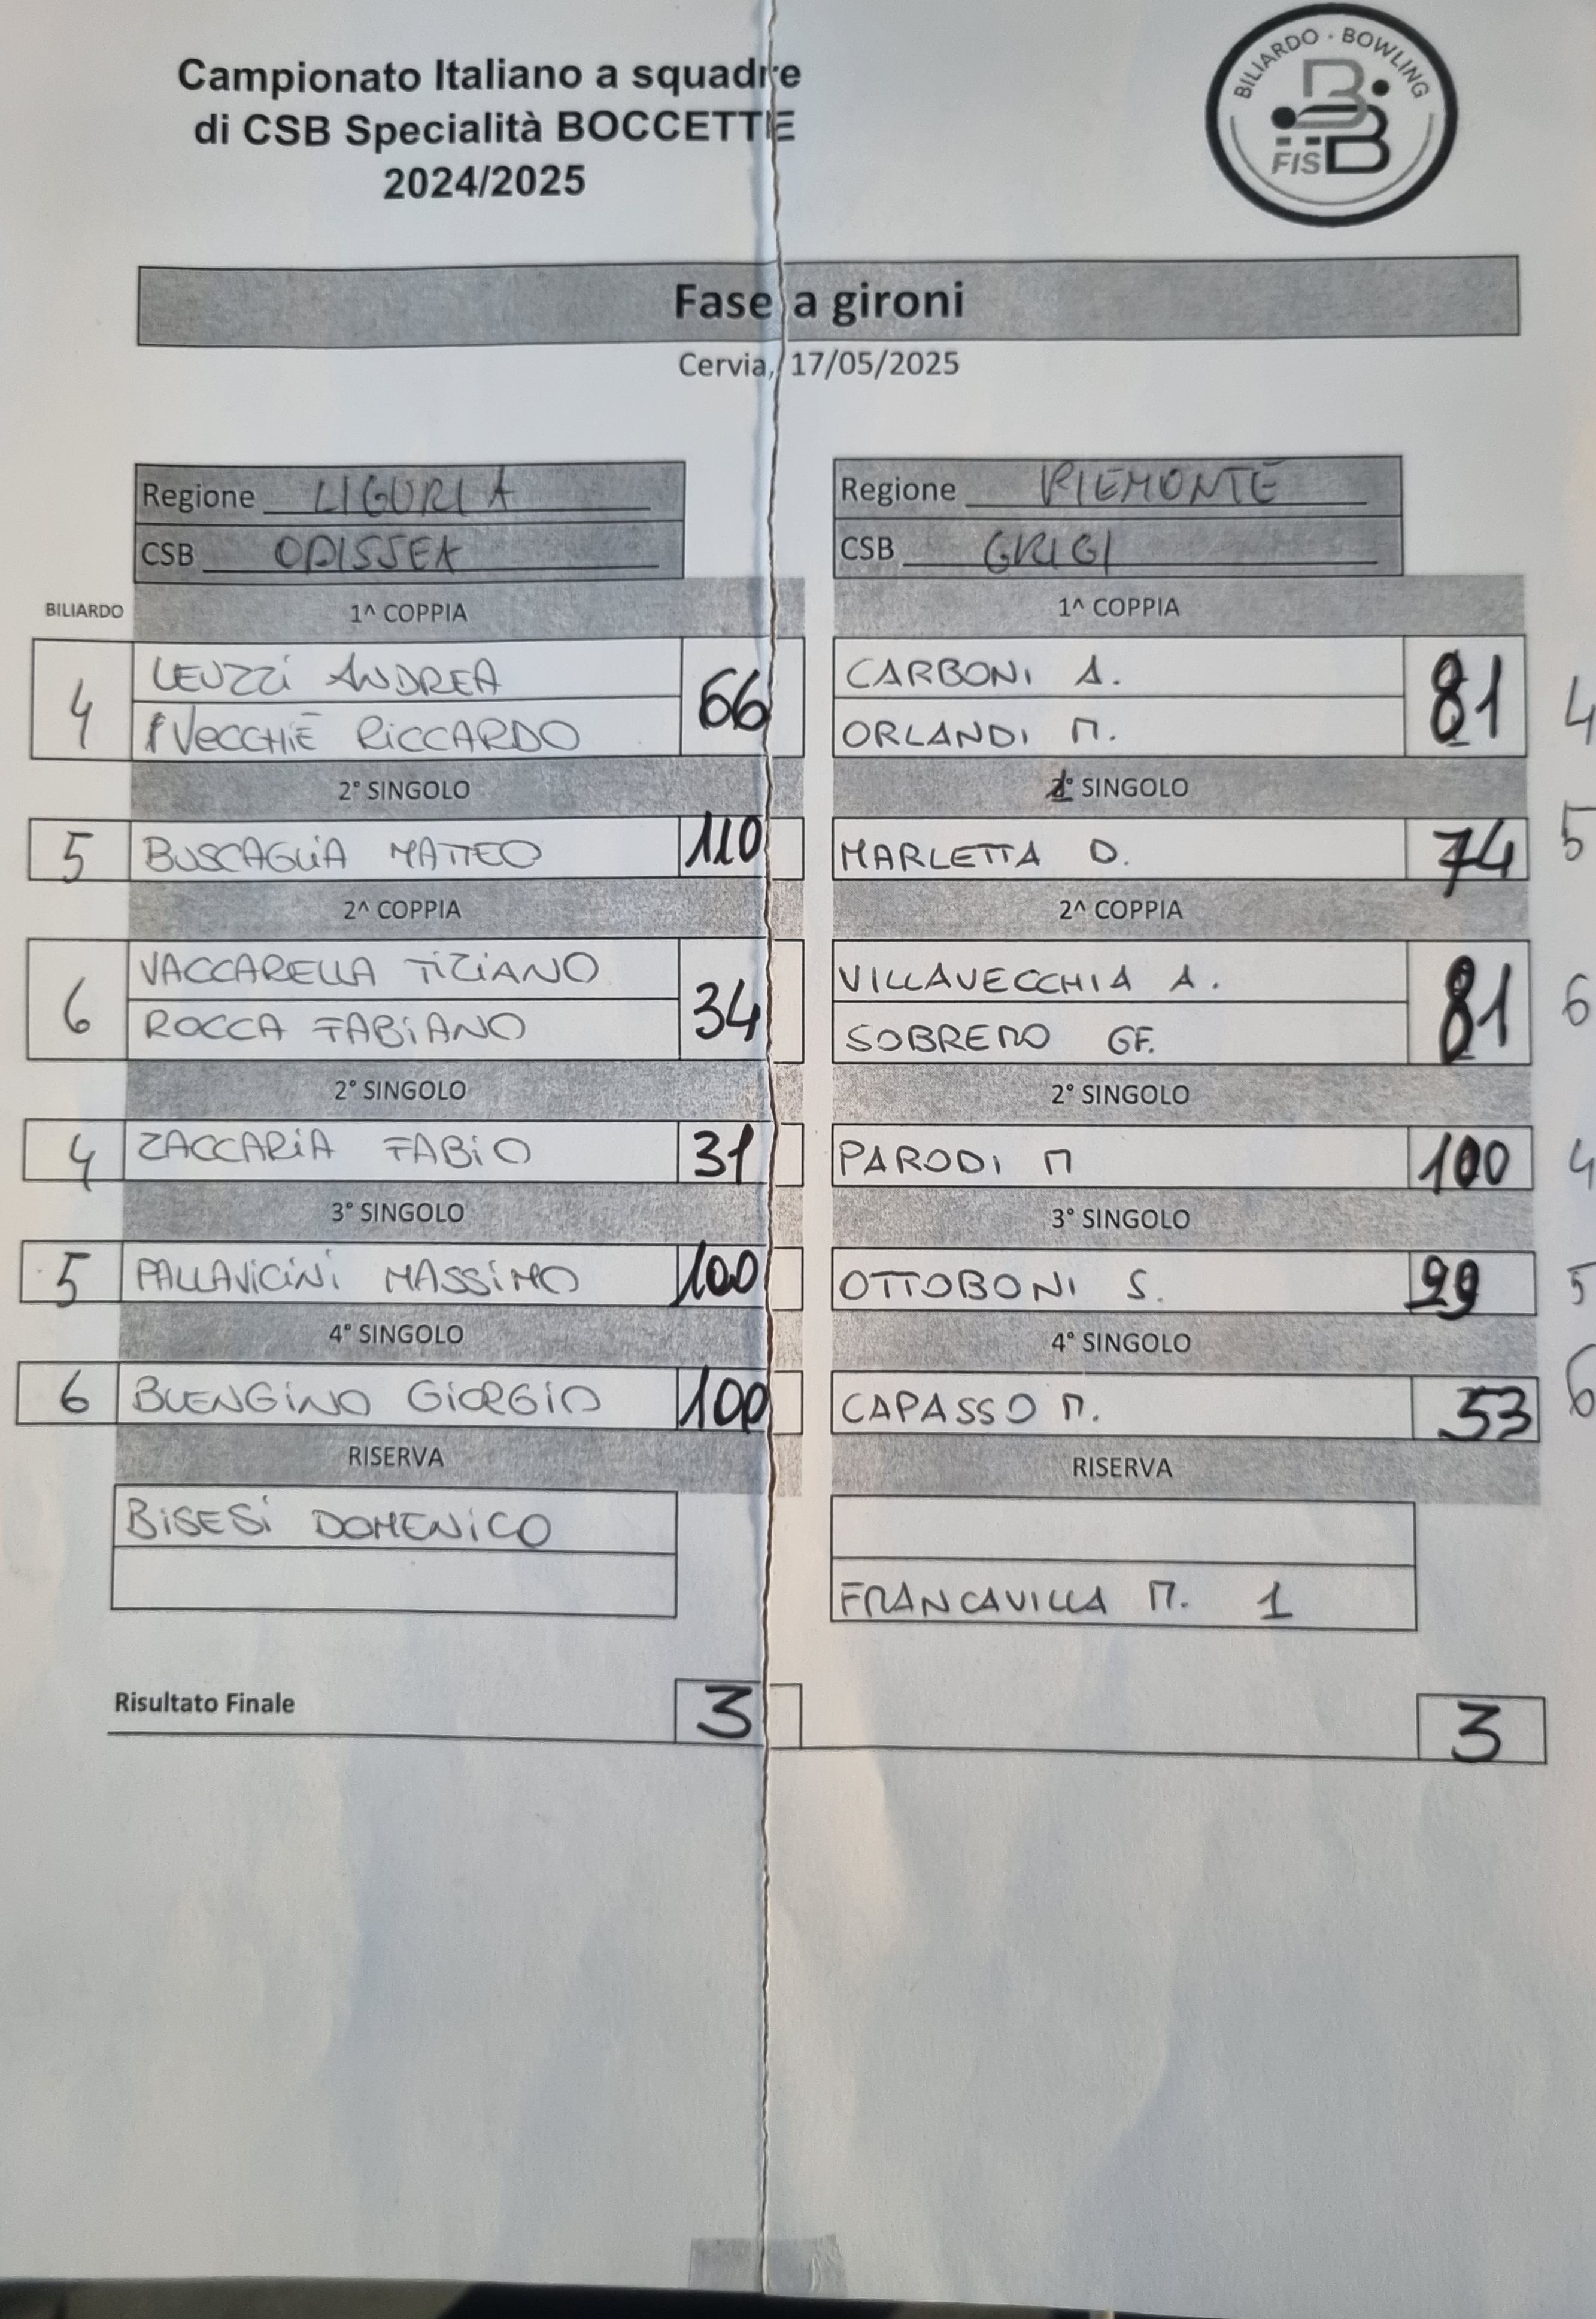 Campionato Italiano a squadre
di CSB Specialità BOCCETTE
2024/2025
BILIARDO · BOWLING
FISBB
Fase a gironi
Cervia, 17/05/2025
Regione LIGURIA
CSB ODISSEA
Regione PIEMONTE
CSB GRIGI
BILIARDO 1^ COPPIA 1^ COPPIA
4 LEUZZI ANDREA 66 CARBONI A. 81 4
VECCHIÈ RICCARDO ORLANDI M.
2° SINGOLO 1° SINGOLO
5 BUSCAGLIA MATTEO 110 MARLETTA D. 74 5
2^ COPPIA 2^ COPPIA
6 VACCARELLA TIZIANO 34 VILLAVECCHIA A. 81 6
ROCCA FABIANO SOBRERO GF.
2° SINGOLO 2° SINGOLO
4 ZACCARIA FABIO 31 PARODI M 100 4
3° SINGOLO 3° SINGOLO
5 PALLAVICINI MASSIMO 100 OTTOBONI S. 99 5
4° SINGOLO 4° SINGOLO
6 BUENGINO GIORGIO 100 CAPASSO M. 53 6
RISERVA RISERVA
BISESI DOMENICO
FRANCAVILLA M. 1
Risultato Finale 3 3